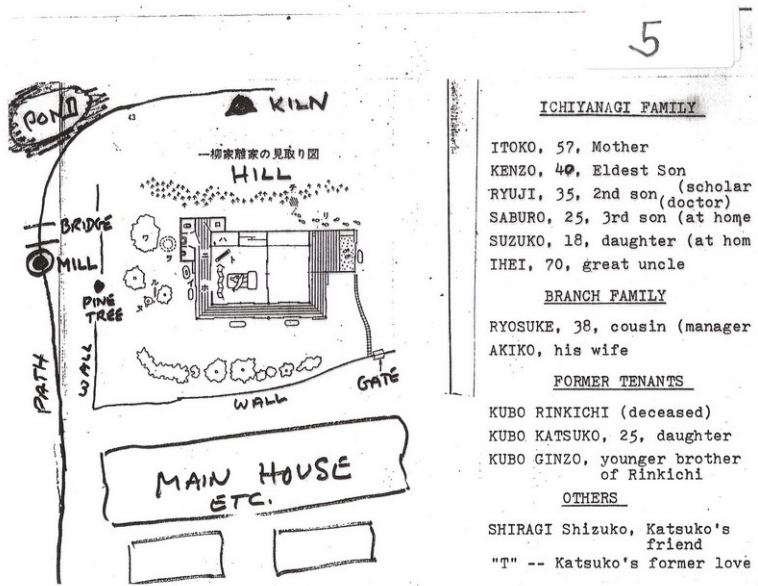 5
POND
43
KILN
一柳家離家の見取り図
HILL
BRIDGE
MILL
PINE
TREE
PATH
WALL
WALL
GATE
MAIN HOUSE
ETC.
ICHIYANAGI FAMILY
ITOKO, 57, Mother
KENZO, 40, Eldest Son
RYUJI, 35, 2nd son (scholar
(doctor)
SABURO, 25, 3rd son (at home
SUZUKO, 18, daughter (at hom
IHEI, 70, great uncle
BRANCH FAMILY
RYOSUKE, 38, cousin (manager
AKIKO, his wife
FORMER TENANTS
KUBO RINKICHI (deceased)
KUBO KATSUKO, 25, daughter
KUBO GINZO, younger brother
of Rinkichi
OTHERS
SHIRAGI Shizuko, Katsuko's
friend
"T" -- Katsuko's former love